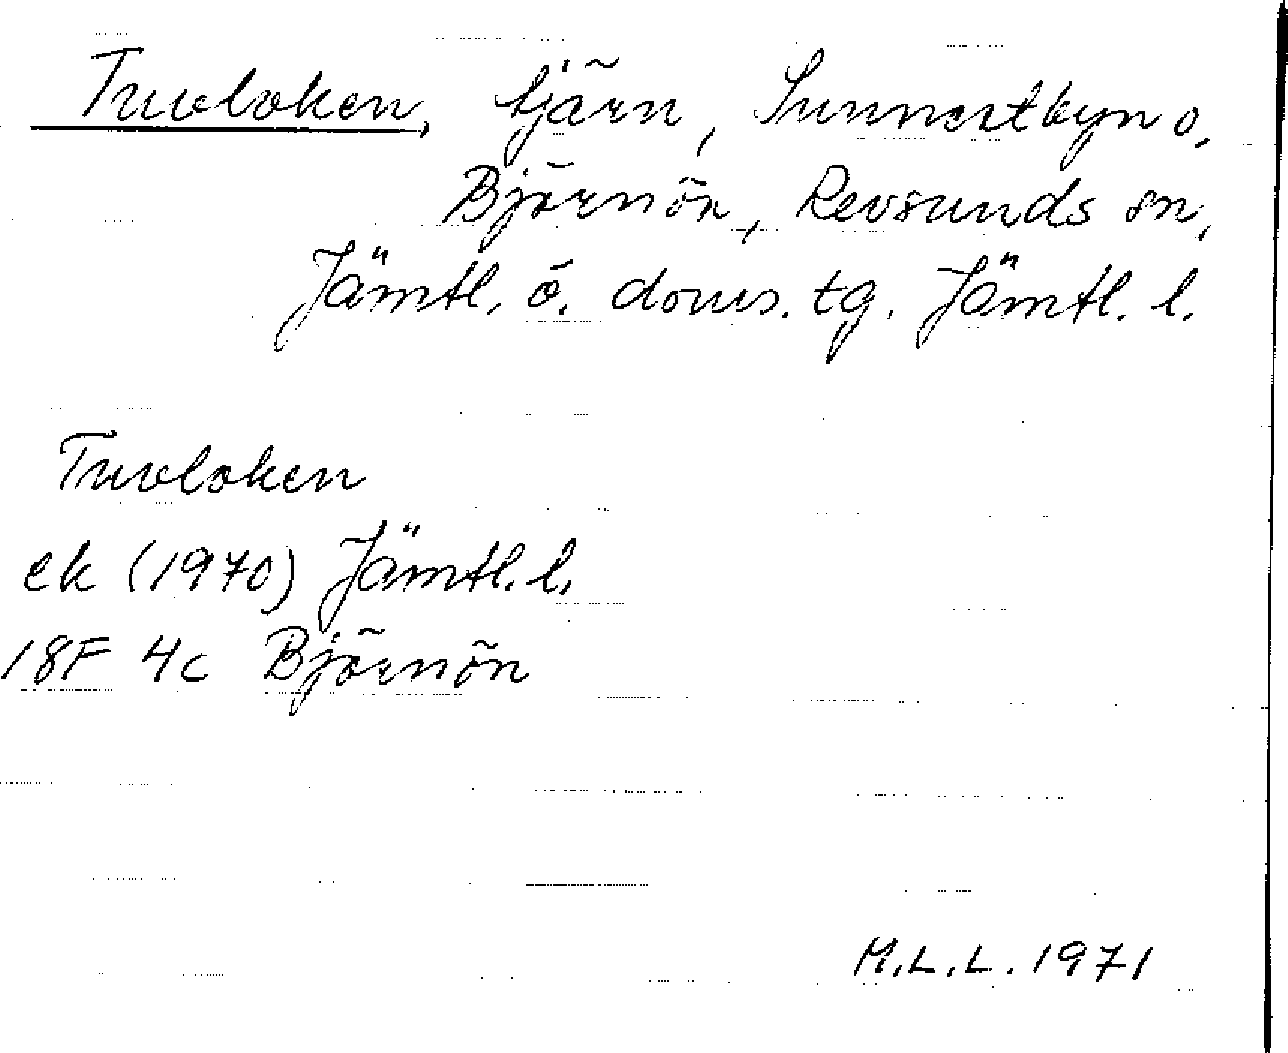 Tuvloken, tjärn, Sunnertbyn o.
Björnön, Revsunds sn,
Jämtl. ö. doms. tg. Jämtl. l.
Tuvloken
ek (1970) Jämtl. l.
18F 4c Björnön
M.L.L. 1971